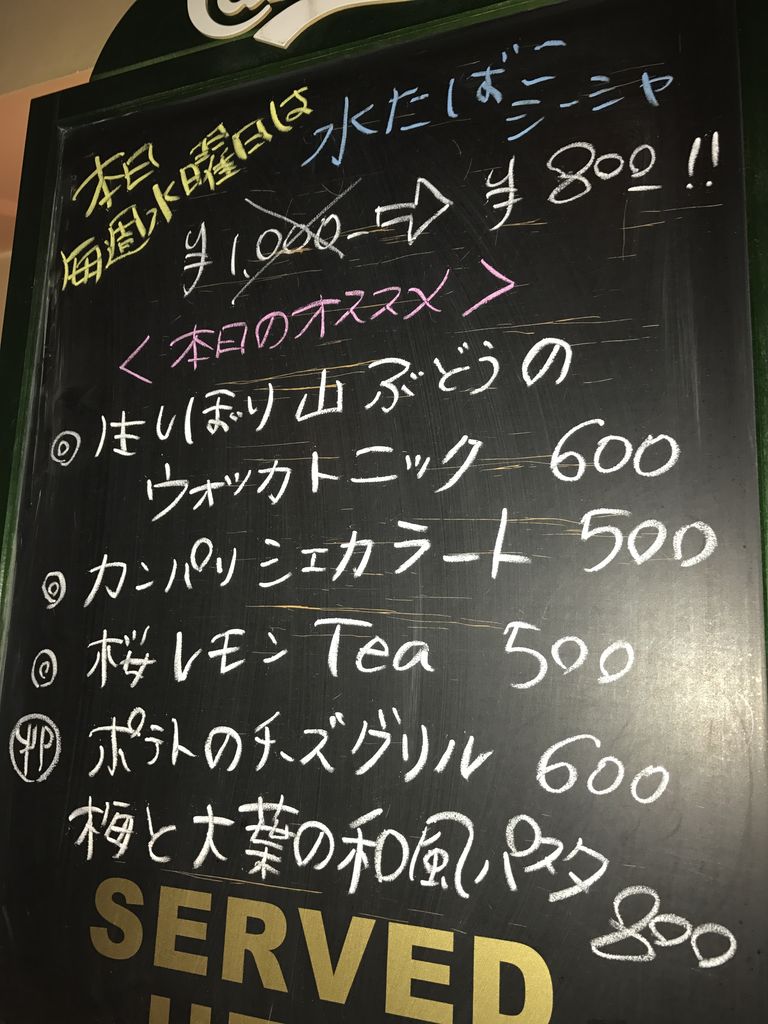 本日
毎週水曜日は
水たばこ
シーシャ
¥1,000 ⇨ ¥800!!
<本日のオススメ>
◎ 生しぼり山ぶどうの
ウォッカトニック 600
◎ カンパリシェカラート 500
◎ 桜レモンTea 500
ポテトのチーズグリル 600
梅と大葉の和風パスタ
800
SERVED